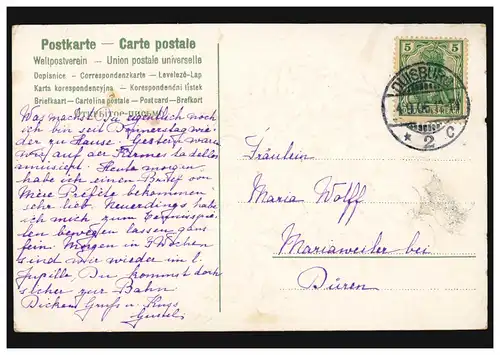 Postkarte — Carte postale
Weltpostverein – Union postale universelle
Dopisnice – Correspondenzkarte – Levelező-Lap
Karta korespondencyjna – Korespondenční lístek
Briefkaart – Cartolina postale – Postcard – Brefkort
Открытое письмо
Was machst Du eigentlich noch
ich bin seit Donnerstag wie-
der zu Hause. Gestern waren
wir auf der Kirmes tadellos
amüsiert. Heute morgen
habe ich einen Brief von
Mère Préfète bekommen
sehr lieb. Neuerdings habe
ich mich zum Tennisspie-
len bewegen lassen, ganz
fein. Morgen in 3 Wochen
sind wir wieder im
Du kommst doch
sicher zur Bahn
Dicken Gruß u. Kuss
Gustel
5 5
DUISBURG
* 2 c
Fräulein
Maria Wolff
Mariaweiler bei
Düren